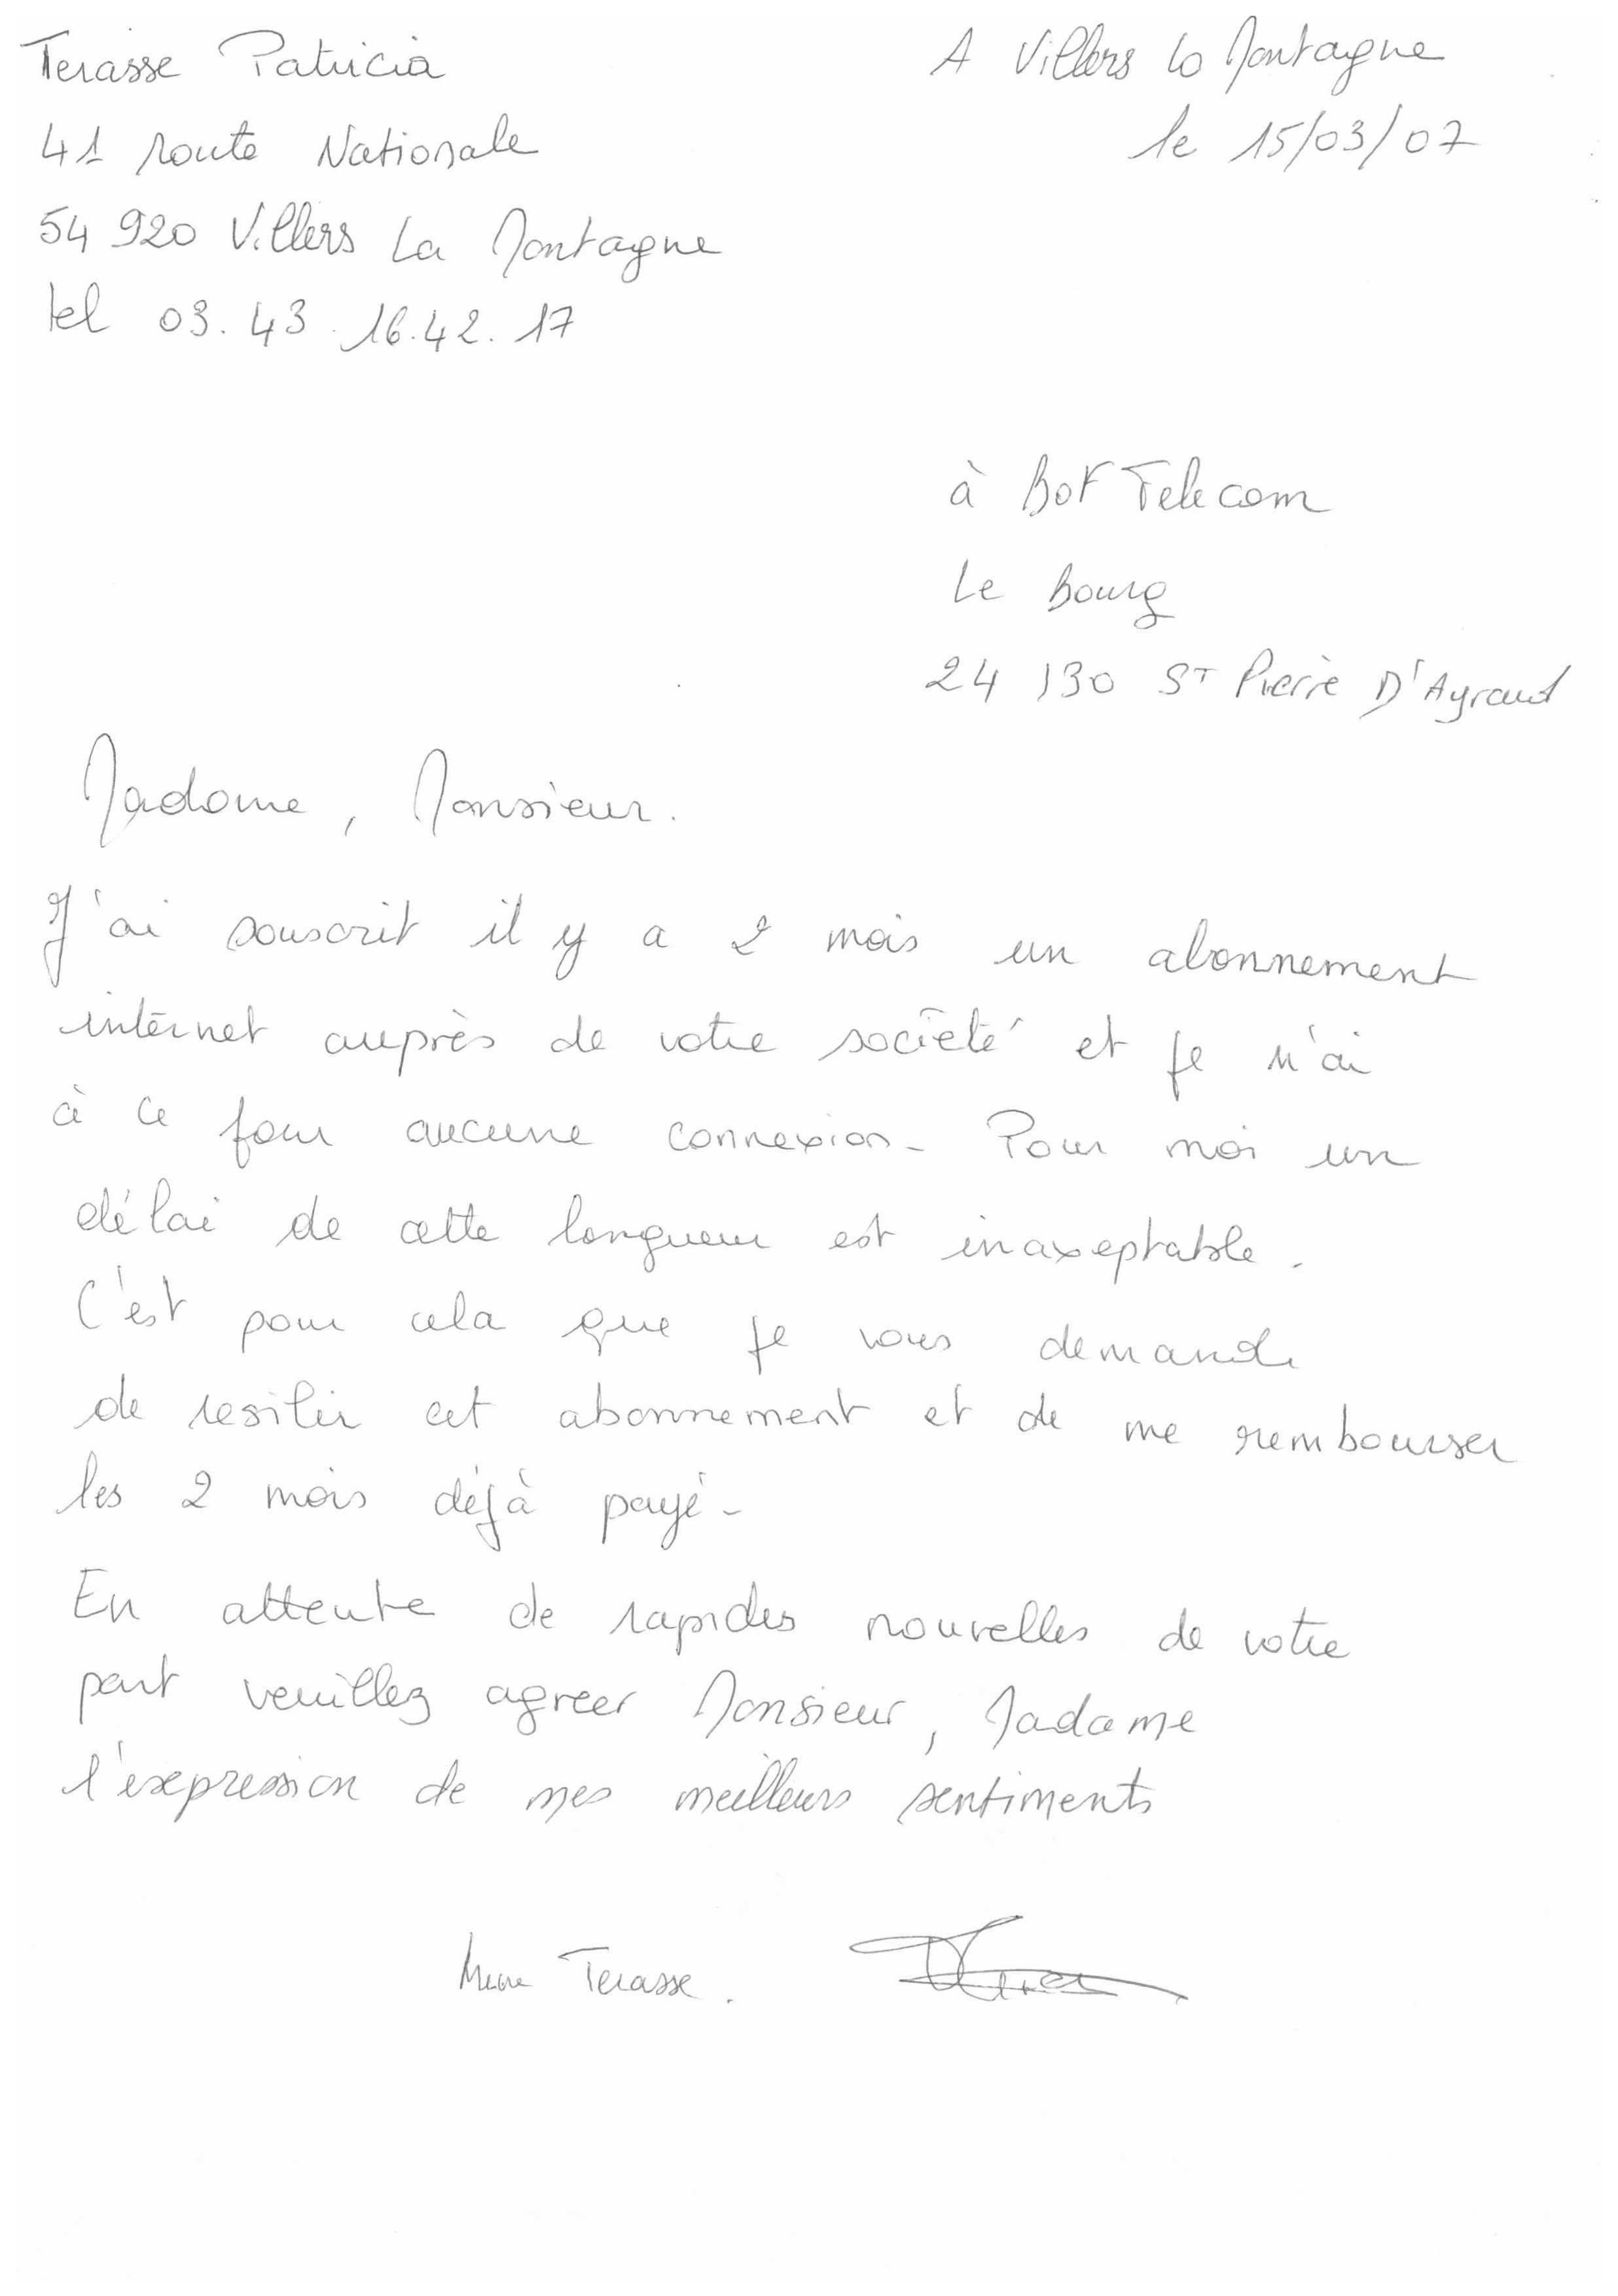 Terasse Patricia
A Villers la Montagne
41 route Nationale
le 15/03/07
54 920 Villers La Montagne
tel 03.43.16.42.17
à BoF Telecom
Le Bourg
24 130 ST Pierre D'Ayraud
Madame, Monsieur.
J'ai souscrit il y a 2 mois un abonnement
internet auprès de votre société et je n'ai
à ce jour aucune connexion. Pour moi un
délai de cette longueur est inaxeptable.
C'est pour cela que je vous demande
de resilier cet abonnement et de me rembourser
les 2 mois déjà payé.
En attente de rapides nouvelles de votre
part veuillez agreer Monsieur, Madame
l'expression de mes meilleurs sentiments
Mme Terasse.